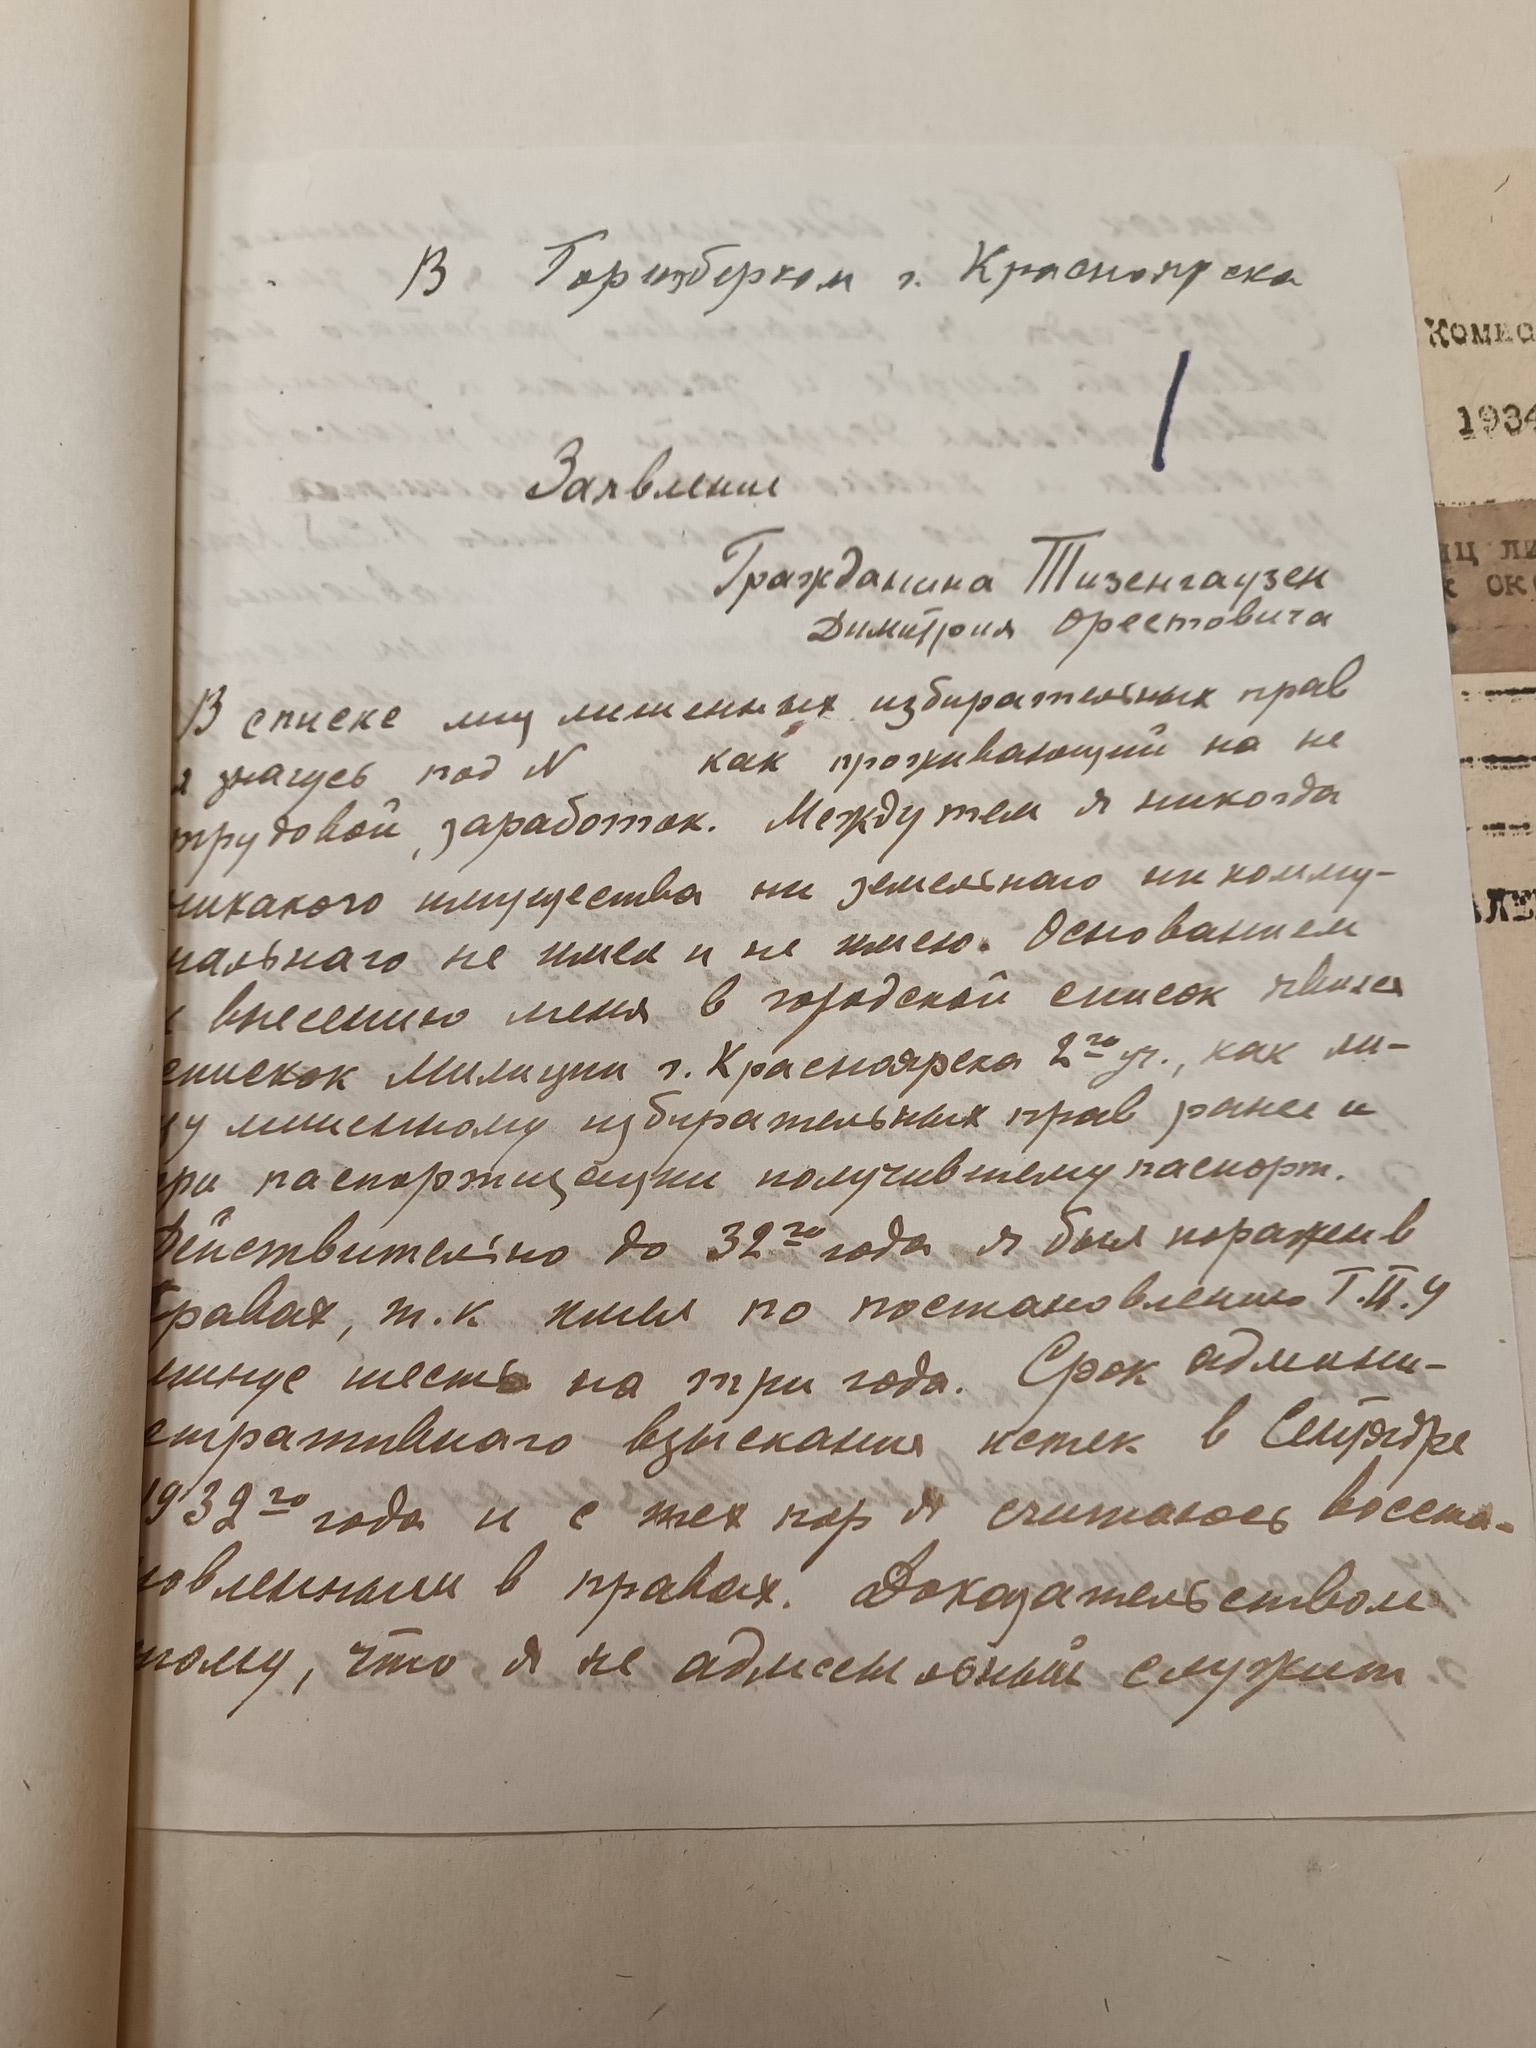 В Горизберком г. Красноярска
Заявление
Гражданина Тизенгаузен
Димитрия Орестовича
В списке лиц лишенных избирательных прав
я значусь под N как проживающий на не
трудовой заработок. Между тем я никогда
никакого имущества ни земельнаго ни комму-
нальнаго не имел и не имею. Основанием
к внесению меня в городской список явился
список Милиции г. Красноярска 2го уч., как ли-
цу лишенному избирательных прав ранее и
при паспортизации получившему паспорт.
Действительно до 32го года я был поражен в
правах, т.к имел по постановлению Г.П.У
минус шесть на три года. Срок админи-
стративнаго взыскания истек в Сентябре
1932го года и с тех пор я считаюсь восста-
новленным в правах. Доказательством
тому, что я не адмссыльный служит
Комис
1934
иц ли
к окр
АЛЕ